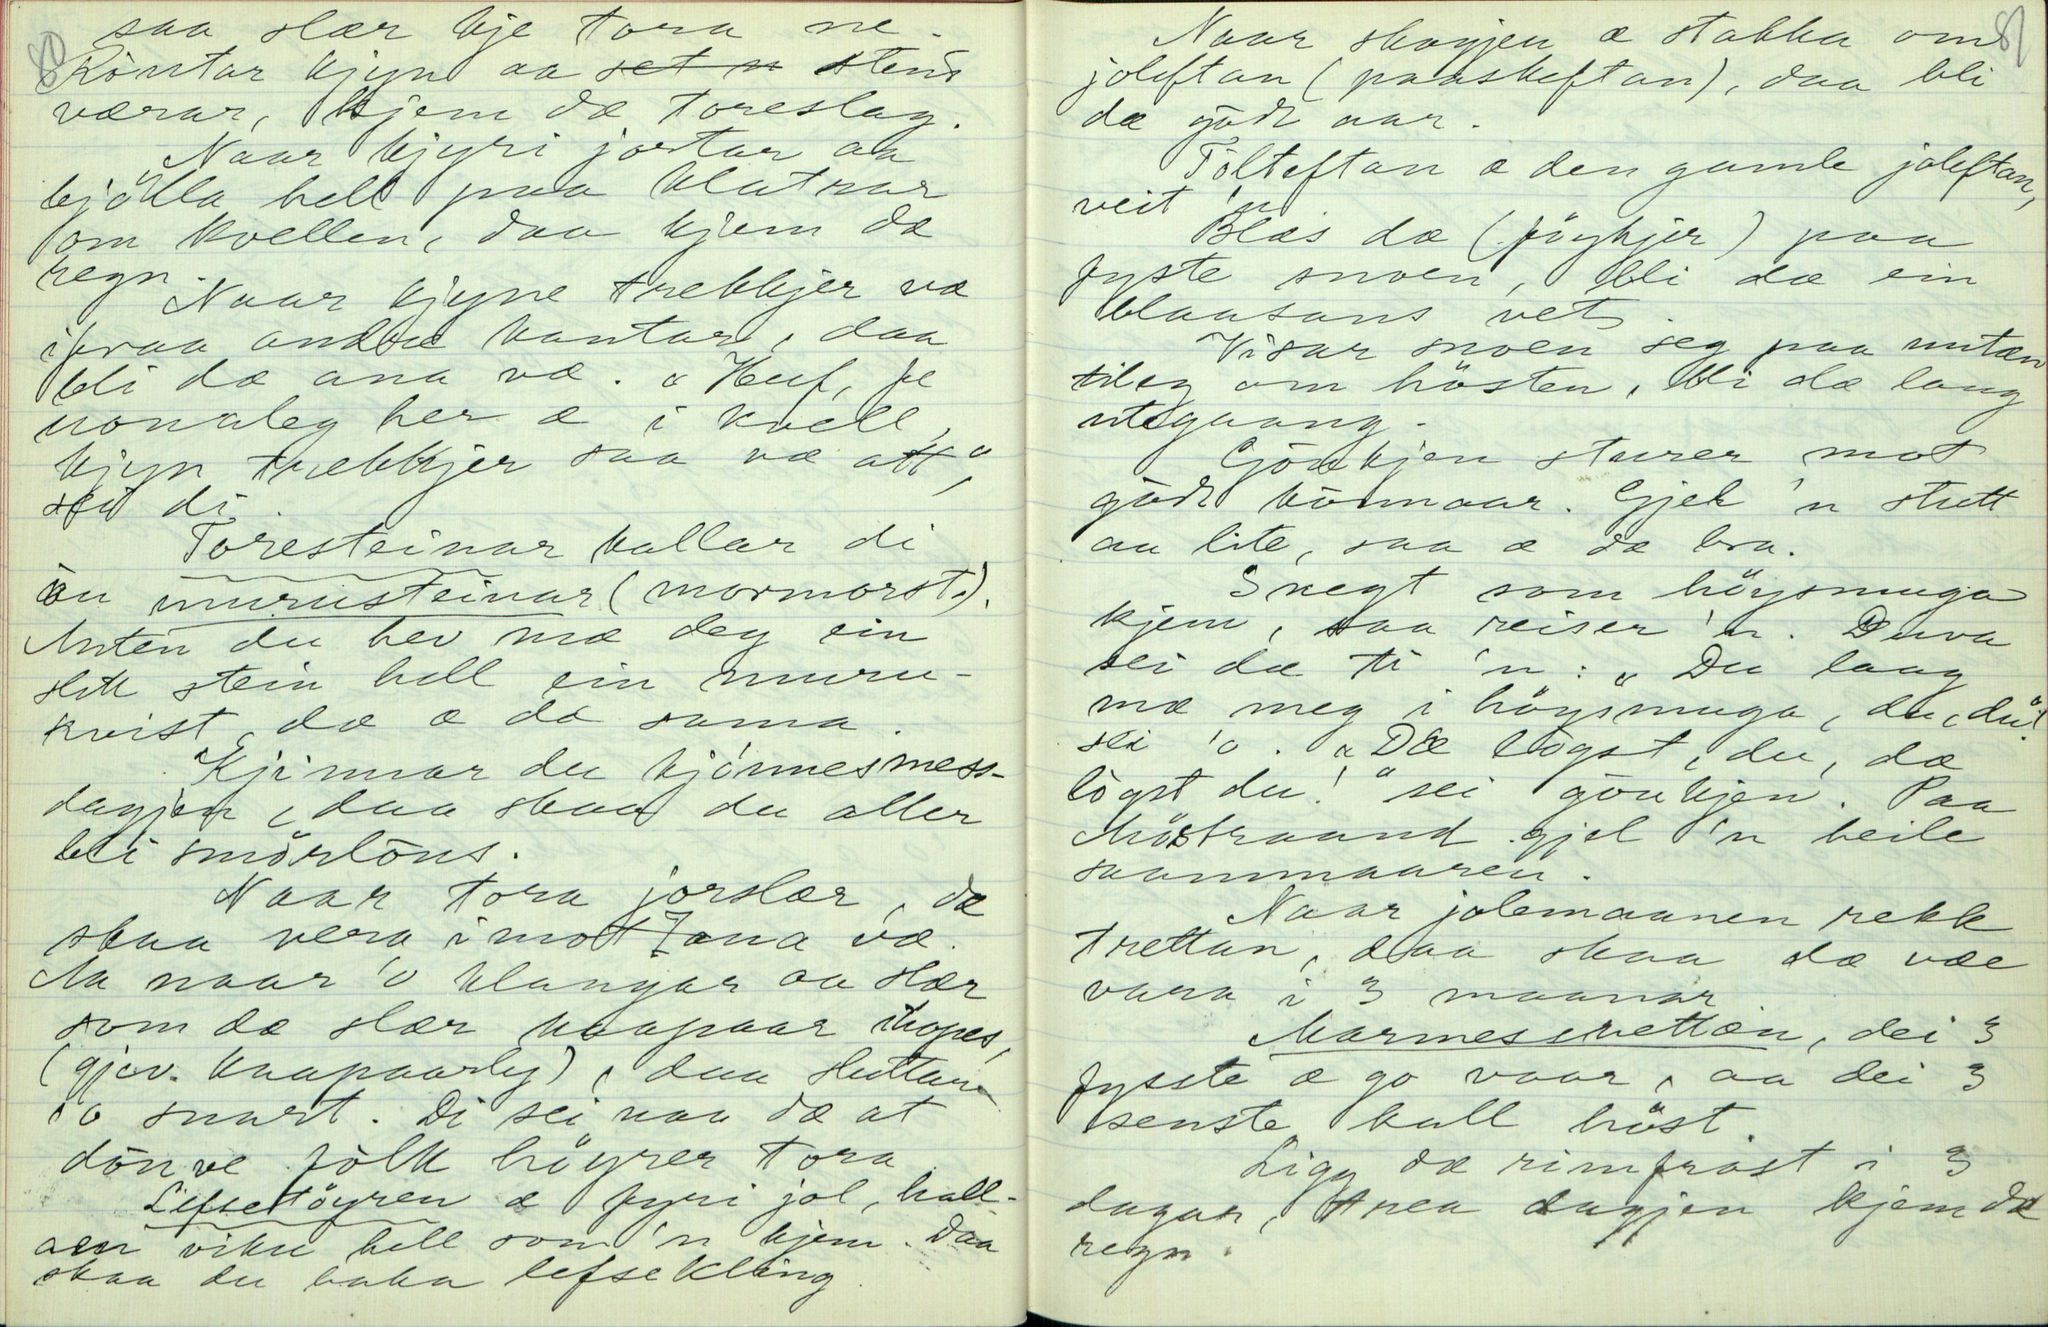 80
saa slær kje tora ne.
Röntar kjyn aa set n stend
værar, kjem dæ toreslag.
Naar kjyri jortar aa
bjölla hell paa klatrar
om kvellen, daa kjem dæ
regn.
Naar kjyne trekkjer væ
ifraa andre kantar, daa
bli dæ ana væ. „Huf, so
uonaleg her æ i kvell,
kjyn trækkjer saa væ att,"
sei di.
Toresteinar kallar di
öu murusteinar (marmorst.).
Anten du hev mæ deg ein
slik stein hell ein muru-
kvist, dæ æ dæ sama.
Kjinnar du kjönnesmess-
dagjen, daa skaa du aller
bli smörlöus.
Naar tora jorslær, dæ
skaa vera imot ana væ.
Aa naar 'o klangar aa slær
som dæ slær kaapaar ihopes,
(gjev. kaapaarleg), daa sluttar
'o snart. Di sei naa dæ at
dönve fölk höyrer tora.
Lefsetöyren æ fyri jol, hall-
aen viku hell som 'n kjem. Daa
skaa du baka lefsekling.
81
Naar skogjen æ stakka om
joleftan (paaskeftan), daa bli
dæ godt aar.
Tolteftan æ den gamle joleftan,
veit 'n
Blæs dæ (föykjer) paa
fyste snoen, bli dæ ein
blaasans vet.
Visar snoen seg paa untæn
tileg om hösten, bli dæ lang
utegaang.
Gjöukjen sturer mot
godt könnaar. Gjel 'n stutt
aa lite, saa æ dæ bra.
Snegt som höysmuga
kjem, saa reiser 'n. Duva
sei dæ ti 'n: „Du laag
mæ meg i höysmuga, du, du!"
sei 'o. „Dæ lögst, du, dæ
lögst du!" sei göukjen. Paa
Möstraand gjel 'n heile
saammaaren.
Naar jolemaanen rekk
trettan, daa skaa dæ væe
vara i 3 maanar.
Marmessvettæn, dei 3
fysste æ go vaar, aa dei 3
senste kall höst.
Ligg dæ rimfrost i 3
dagar, trea dagjen kjem dæ
regn.